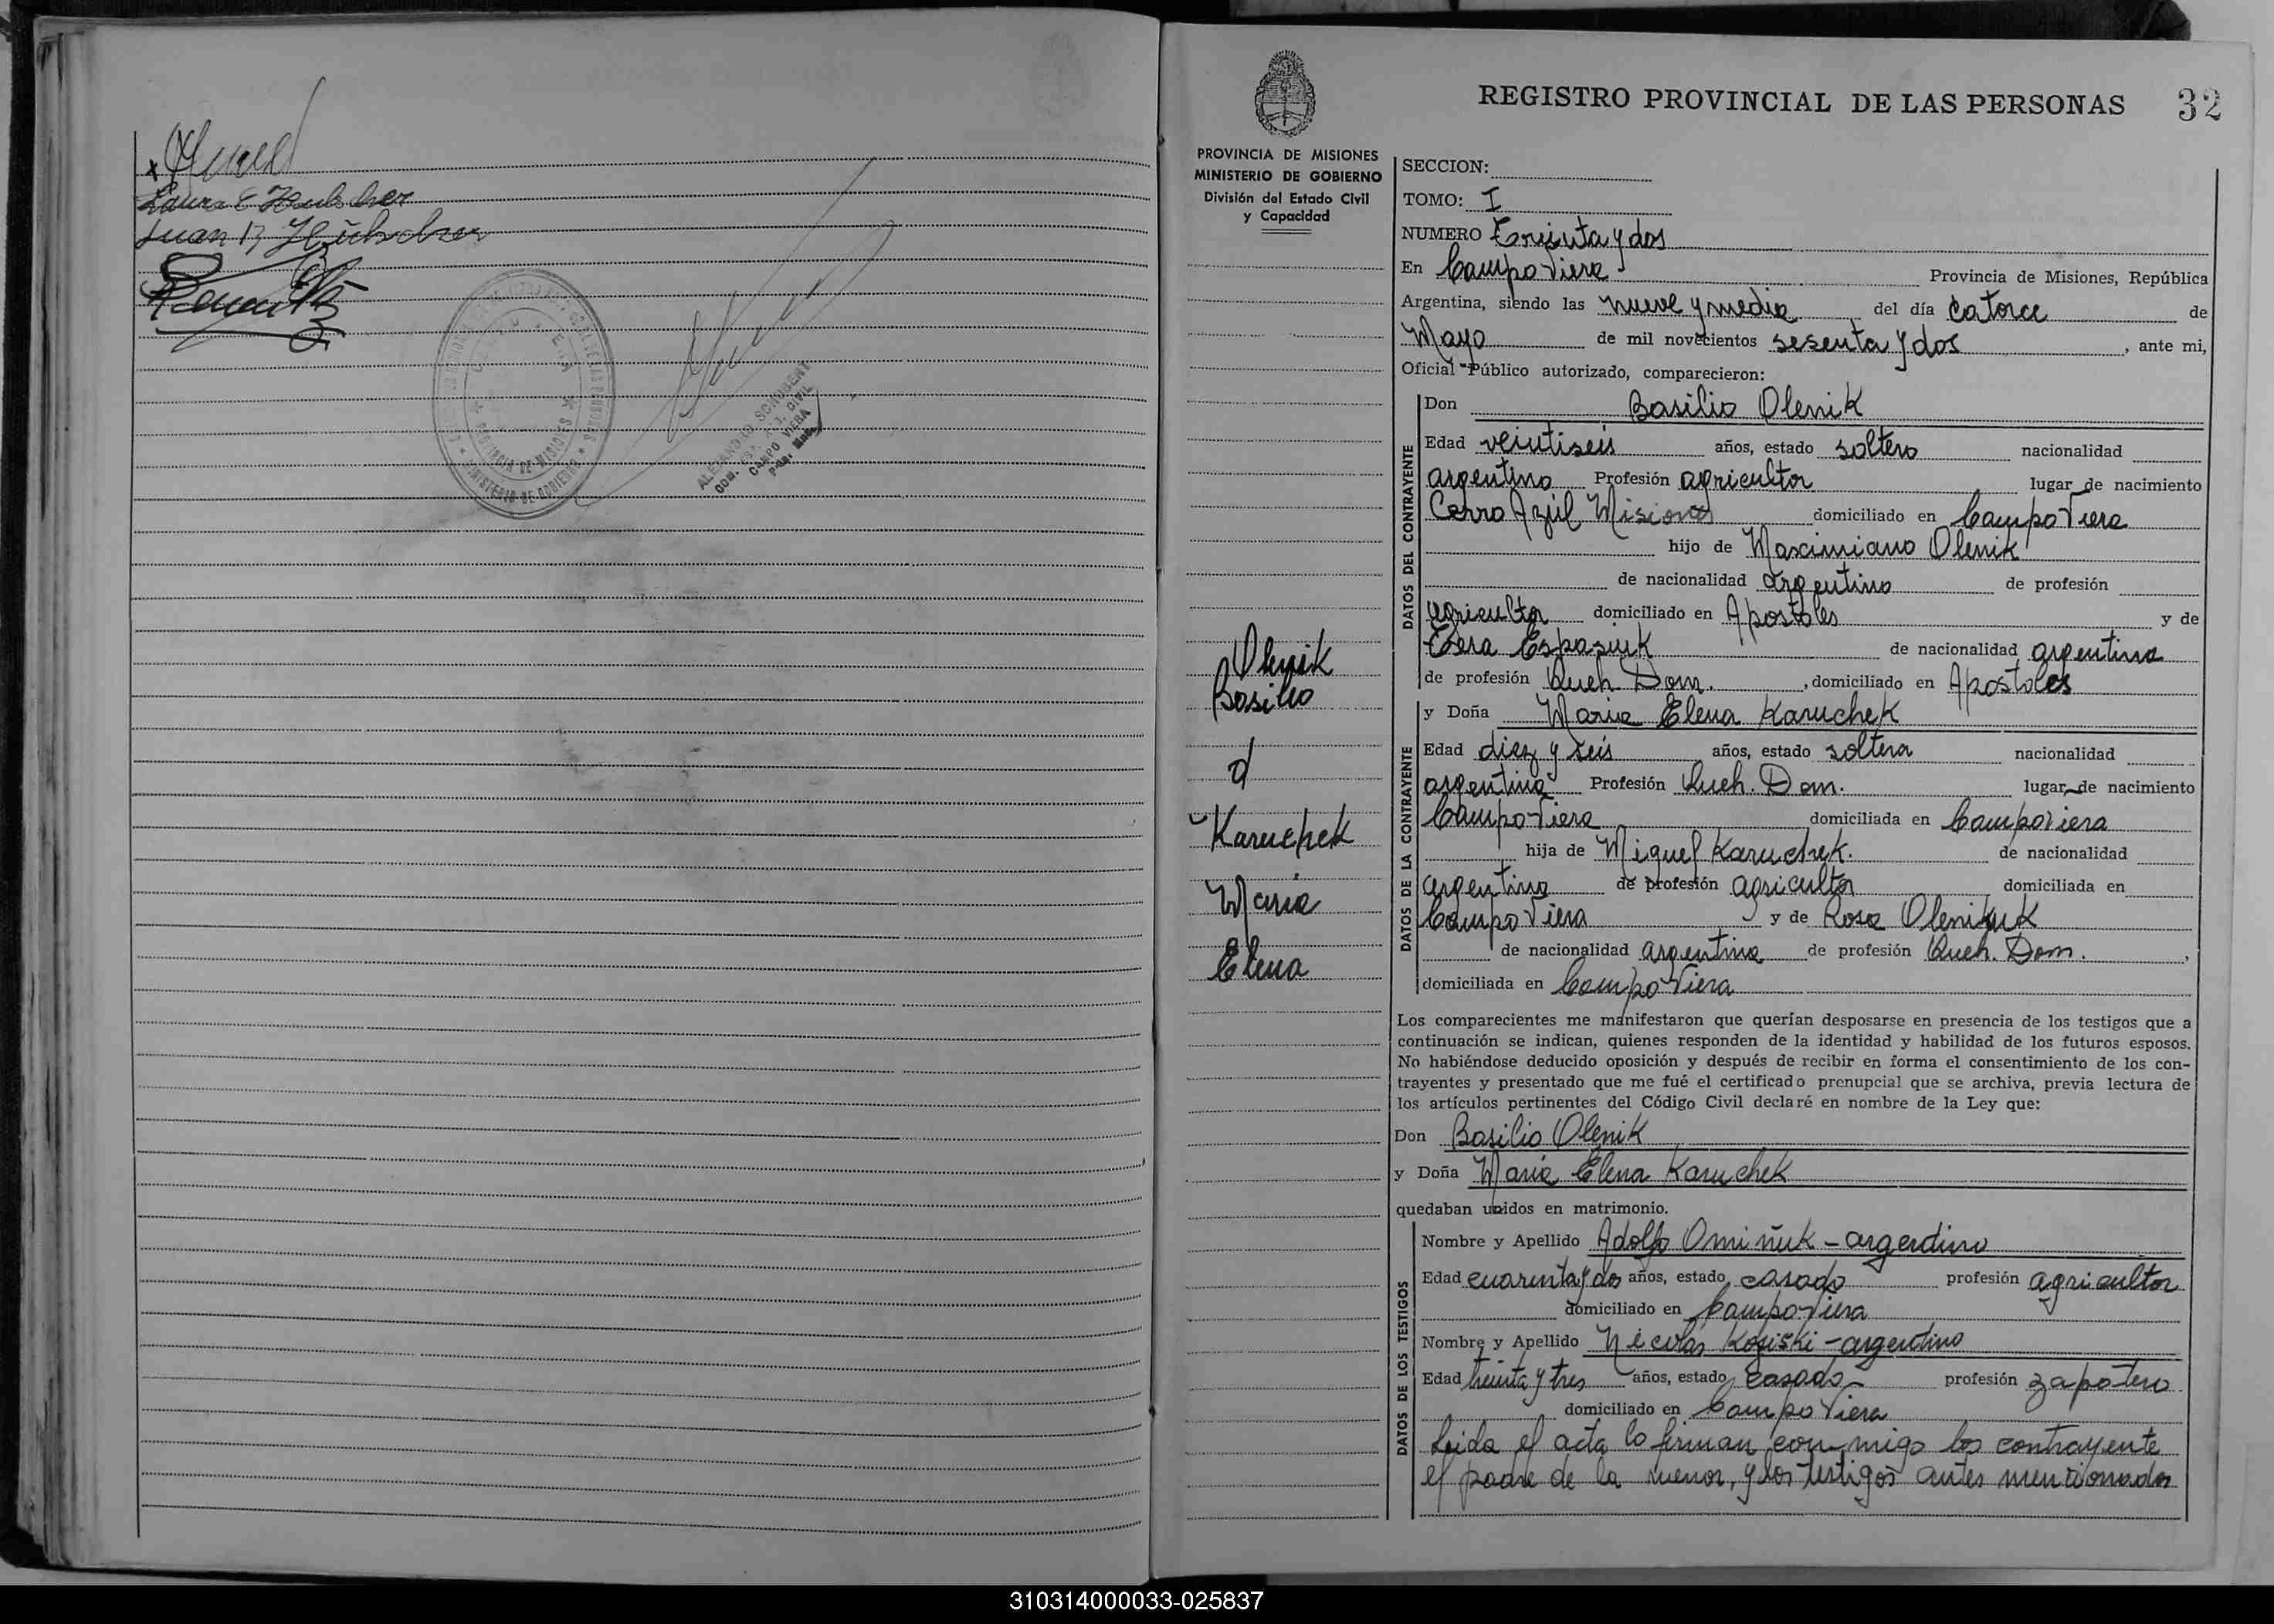 Laura E Hübscher
Juan B Hübscher
PROVINCIA DE MISIONES
MINISTERIO DE GOBIERNO
ALEJANDRO SCHUBERT
CAMPO VIERA
REGISTRO PROVINCIAL DE LAS PERSONAS 32
PROVINCIA DE MISIONES
MINISTERIO DE GOBIERNO
División del Estado Civil
y Capacidad
Olenik
Basilio
Karuchek
Maria
Elena
SECCION:
TOMO: I
NUMERO Treinta y dos
En Campo Viera Provincia de Misiones, República
Argentina, siendo las nueve y media del día catorce de
Mayo de mil novecientos sesenta y dos, ante mi,
Oficial Público autorizado, comparecieron:
DATOS DEL CONTRAYENTE
Don Basilio Olenik
Edad veintiseis años, estado soltero nacionalidad
argentino Profesión agricultor lugar de nacimiento
Cerro Azúl Misiones domiciliado en Campo Viera
hijo de Maximiano Olenik
de nacionalidad argentino de profesión
agricultor domiciliado en Apostoles y de
Espasiuk de nacionalidad argentina
de profesión Queh. Dom., domiciliado en Apostoles
DATOS DE LA CONTRAYENTE
y Doña Maria Elena Karuchek
Edad diez y seis años, estado soltera nacionalidad
argentina Profesión Queh. Dom. lugar de nacimiento
Campo Viera domiciliada en Campo Viera
hija de Miguel Karuchek. de nacionalidad
argentino de profesión agricultor domiciliada en
Campo Viera y de Rosa Oleniuk
de nacionalidad argentina de profesión Queh. Dom.,
domiciliada en Campo Viera
Los comparecientes me manifestaron que querían desposarse en presencia de los testigos que a
continuación se indican, quienes responden de la identidad y habilidad de los futuros esposos.
No habiéndose deducido oposición y después de recibir en forma el consentimiento de los con-
trayentes y presentado que me fué el certificado prenupcial que se archiva, previa lectura de
los artículos pertinentes del Código Civil declaré en nombre de la Ley que:
Don Basilio Olenik
y Doña Maria Elena Karuchek
quedaban unidos en matrimonio.
DATOS DE LOS TESTIGOS
Nombre y Apellido Adolfo Omiñuk - argentino
Edad cuarenta y dos años, estado casado profesión agricultor
domiciliado en Campo Viera
Nombre y Apellido Nicolás Kosiski - argentino
Edad treinta y tres años, estado casado profesión zapatero
domiciliado en Campo Viera
Leida el acta lo firman conmigo los contrayente
el padre de la menor, y los testigos antes mencionados
310314000033-025837